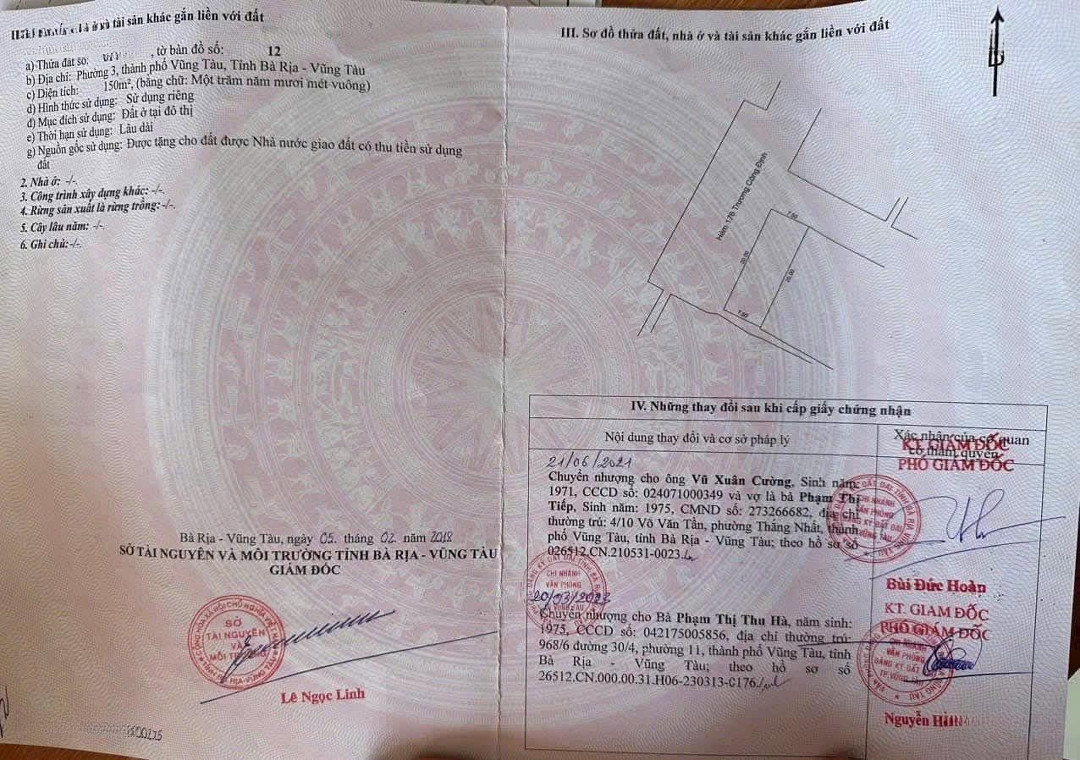 ở và tài sản khác gắn liền với đất
a) Thửa đất số: , tờ bản đồ số: 12
b) Địa chỉ: Phường 3, thành phố Vũng Tàu, Tỉnh Bà Rịa - Vũng Tàu
c) Diện tích: 150m², (bằng chữ: Một trăm năm mươi mét vuông)
d) Hình thức sử dụng: Sử dụng riêng
đ) Mục đích sử dụng: Đất ở tại đô thị
e) Thời hạn sử dụng: Lâu dài
g) Nguồn gốc sử dụng: Được tặng cho đất được Nhà nước giao đất có thu tiền sử dụng
đất
2. Nhà ở: -/-
3. Công trình xây dựng khác: -/-.
4. Rừng sản xuất là rừng trồng: -/-.
5. Cây lâu năm: -/-.
6. Ghi chú:-/-.
Bà Rịa - Vũng Tàu, ngày 05 tháng 02 năm 2018
SỞ TÀI NGUYÊN VÀ MÔI TRƯỜNG TỈNH BÀ RỊA - VŨNG TÀU
GIÁM ĐỐC
SỞ
TÀI NGUYÊN
VÀ
MÔI TRƯỜNG
Lê Ngọc Linh
III. Sơ đồ thửa đất, nhà ở và tài sản khác gắn liền với đất
Hẻm 176 Trương Công Định
7.50
20.00
20.00
7.50
IV. Những thay đổi sau khi cấp giấy chứng nhận
Nội dung thay đổi và cơ sở pháp lý
Xác nhận của cơ quan
có thẩm quyền
KT. GIÁM ĐỐC
PHÓ GIÁM ĐỐC
21/06/2021
Chuyển nhượng cho ông Vũ Xuân Cường, Sinh năm:
1971, CCCD số: 024071000349 và vợ là bà Phạm Thị
Tiếp, Sinh năm: 1975, CMND số: 273266682, địa chỉ
thường trú: 4/10 Võ Văn Tần, phường Thắng Nhất, thành
phố Vũng Tàu, tỉnh Bà Rịa - Vũng Tàu; theo hồ sơ số
026512.CN.210531-0023
CHI NHÁNH
VĂN PHÒNG
ĐĂNG KÝ ĐẤT ĐAI
TP.VŨNG TÀU
Bùi Đức Hoàn
CHI NHÁNH
VĂN PHÒNG
20/03/2023
Chuyển nhượng cho Bà Phạm Thị Thu Hà, năm sinh:
1975, CCCD số: 042175005856, địa chỉ thường trú:
968/6 đường 30/4, phường 11, thành phố Vũng Tàu, tỉnh
Bà Rịa - Vũng Tàu; theo hồ sơ số
26512.CN.000.00.31.H06-230313-0176
KT. GIÁM ĐỐC
PHÓ GIÁM ĐỐC
CHI NHÁNH
VĂN PHÒNG
ĐĂNG KÝ ĐẤT ĐAI
TP.VŨNG TÀU
Nguyễn